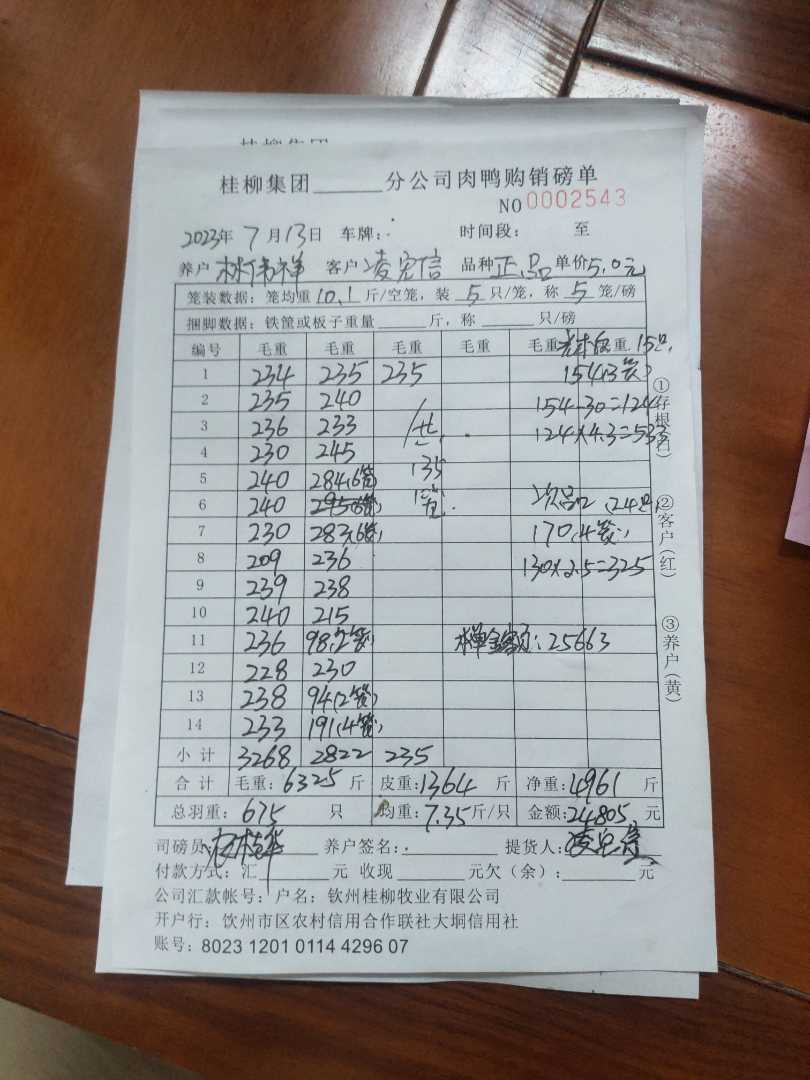 桂柳集团
桂柳集团______分公司肉鸭购销磅单
NO 0002543
2023年 7 月 13日 车牌: 时间段: 至
养户 林伟祥 客户 凌宪信 品种 正品 单价 5.0元
笼装数据: 笼均重 10.1 斤/空笼, 装 5 只/笼, 称 5 笼/磅
捆脚数据: 铁筐或板子重量______斤, 称______只/磅
编号 毛重 毛重 毛重 毛重 毛重 毛重. 15只,
1 234 235 235 154(3笼)
2 235 240 154-30=124
3 236 233 124×4.3=533
4 230 245
5 240 284(6笼) 135
6 240 295(6笼) 笼. 次品 (24只)
7 230 283(6笼) 170(4笼)
8 209 236 130×2.5=325
9 239 238
10 240 215
11 236 98(2笼) 本单金额: 25663
12 228 230
13 238 94(2笼)
14 233 191(4笼)
小计 3268 2822 235
合计 毛重: 6325 斤 皮重: 1364 斤 净重: 4961 斤
总羽重: 675 只 均重: 7.35斤/只 金额: 24805 元
司磅员: 养户签名: 提货人: 凌宪信
付款方式: 汇______元 收现______元欠(余): ______元
公司汇款帐号: 户名: 钦州桂柳牧业有限公司
开户行: 饮州市区农村信用合作联社大垌信用社
账号: 8023 1201 0114 4296 07
①存根(白)
②客户(红)
③养户(黄)